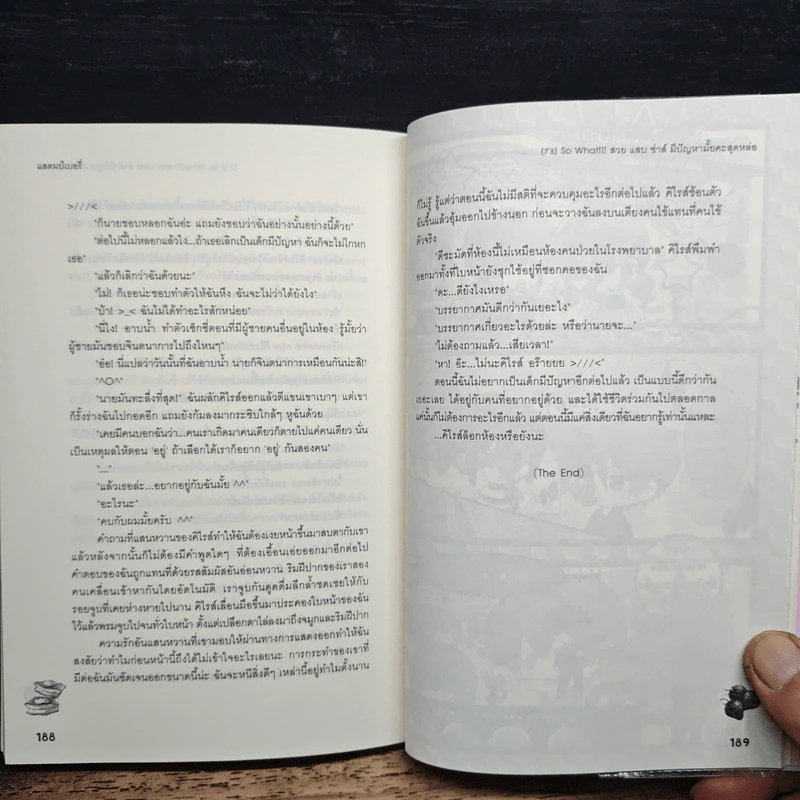 แสตมป์เบอรี่
>///<
"ก็นายชอบหลอกฉันอ่ะ แถมยังชอบว่าฉันอย่างนั้นอย่างนี้ด้วย"
"ต่อไปนี้ไม่หลอกแล้วไง...ถ้าเธอเลิกเป็นเด็กมีปัญหา ฉันก็จะไม่โกหก
เธอ"
"แล้วก็เลิกว่าฉันด้วยนะ"
"ไม่! ก็เธอน่ะชอบทำตัวให้ฉันหึง ฉันจะไม่ว่าได้ยังไง"
"บ้า! >_< ฉันไม่ได้ทำอะไรสักหน่อย"
"นี่ไง! อาบน้ำ ทำตัวเซ็กซี่ตอนที่มีผู้ชายคนอื่นอยู่ในห้อง รู้มั้ยว่า
ผู้ชายมันชอบจินตนาการไปถึงไหนๆ"
"อ๋อ! นี่แปลว่าวันนั้นที่ฉันอาบน้ำ นายก็จินตนาการเหมือนกันน่ะสิ!"
"^O^"
"นายมันทะลึ่งที่สุด!" ฉันผลักคิโรส์ออกแล้วตีแขนเขาเบาๆ แต่เขา
ก็รั้งร่างฉันไปกอดอีก แถมยังก้มลงมากระซิบใกล้ๆ หูฉันด้วย
"เคยมีคนบอกฉันว่า...คนเราเกิดมาคนเดียวก็ตายไปแค่คนเดียว นั่น
เป็นเหตุผลให้ตอน 'อยู่' ถ้าเลือกได้เราก็อยาก 'อยู่' กันสองคน"
"..."
"แล้วเธอล่ะ...อยากอยู่กับฉันมั้ย ^^"
"อะไรนะ"
"คบกับผมมั้ยครับ ^^"
คำถามที่แสนหวานของคิโรส์ทำให้ฉันต้องเงยหน้าขึ้นมาสบตากับเขา
แล้วหลังจากนั้นก็ไม่ต้องมีคำพูดใดๆ ที่ต้องเอื้อนเอ่ยออกมาอีกต่อไป
คำตอบของฉันถูกแทนที่ด้วยรสสัมผัสอันอ่อนหวาน ริมฝีปากของเราสอง
คนเคลื่อนเข้าหากันโดยอัตโนมัติ เราจูบกันดูดดื่มลึกล้ำชดเชยให้กับ
รอยจูบที่เคยห่างหายไปนาน คิโรส์เลื่อนมือขึ้นมาประคองใบหน้าของฉัน
ไว้แล้วพรมจูบไปจนทั่วใบหน้า ตั้งแต่เปลือกตาไล่ลงมาถึงจมูกและริมฝีปาก
ความรักอันแสนหวานที่เขามอบให้ผ่านทางการแสดงออกทำให้ฉัน
สงสัยว่าทำไมก่อนหน้านี้ถึงได้ไม่เข้าใจอะไรเลยนะ การกระทำของเขาที่
มีต่อฉันมันชัดเจนออกขนาดนี้น่ะ ฉันจะหนีสิ่งดีๆ เหล่านี้อยู่ทำไมตั้งนาน
188
(7's) So What!!! สวย แสบ ซ่าส์ มีปัญหามั้ยคะสุดหล่อ
ก็ไม่รู้ รู้แต่ว่าตอนนี้ฉันไม่มีสติที่จะควบคุมอะไรอีกต่อไปแล้ว คิโรส์ช้อนตัว
ฉันขึ้นแล้วอุ้มออกไปข้างนอก ก่อนจะวางฉันลงบนเตียงคนไข้แทนที่คนไข้
ตัวจริง
"ดีชะมัดที่ห้องนี้ไม่เหมือนห้องคนป่วยในโรงพยาบาล" คิโรส์พึมพำ
ออกมาทั้งที่ใบหน้ายังซุกไซ้อยู่ที่ซอกคอของฉัน
"ดะ...ดียังไงเหรอ"
"บรรยากาศมันดีกว่ากันเยอะไง"
"บรรยากาศเกี่ยวอะไรด้วยล่ะ หรือว่านายจะ..."
"ไม่ต้องถามแล้ว...เสียเวลา!"
"หา! อ๊ะ...ไม่นะคิโรส์ อร๊ายยย >///<"
ตอนนี้ฉันไม่อยากเป็นเด็กมีปัญหาอีกต่อไปแล้ว เป็นแบบนี้ดีกว่ากัน
เยอะเลย ได้อยู่กับคนที่อยากอยู่ด้วย และได้ใช้ชีวิตร่วมกันไปตลอดกาล
แค่นั้นก็ไม่ต้องการอะไรอีกแล้ว แต่ตอนนี้มีแค่สิ่งเดียวที่ฉันอยากรู้เท่านั้นแหละ
...คิโรส์ล็อกห้องหรือยังนะ
(The End)
189